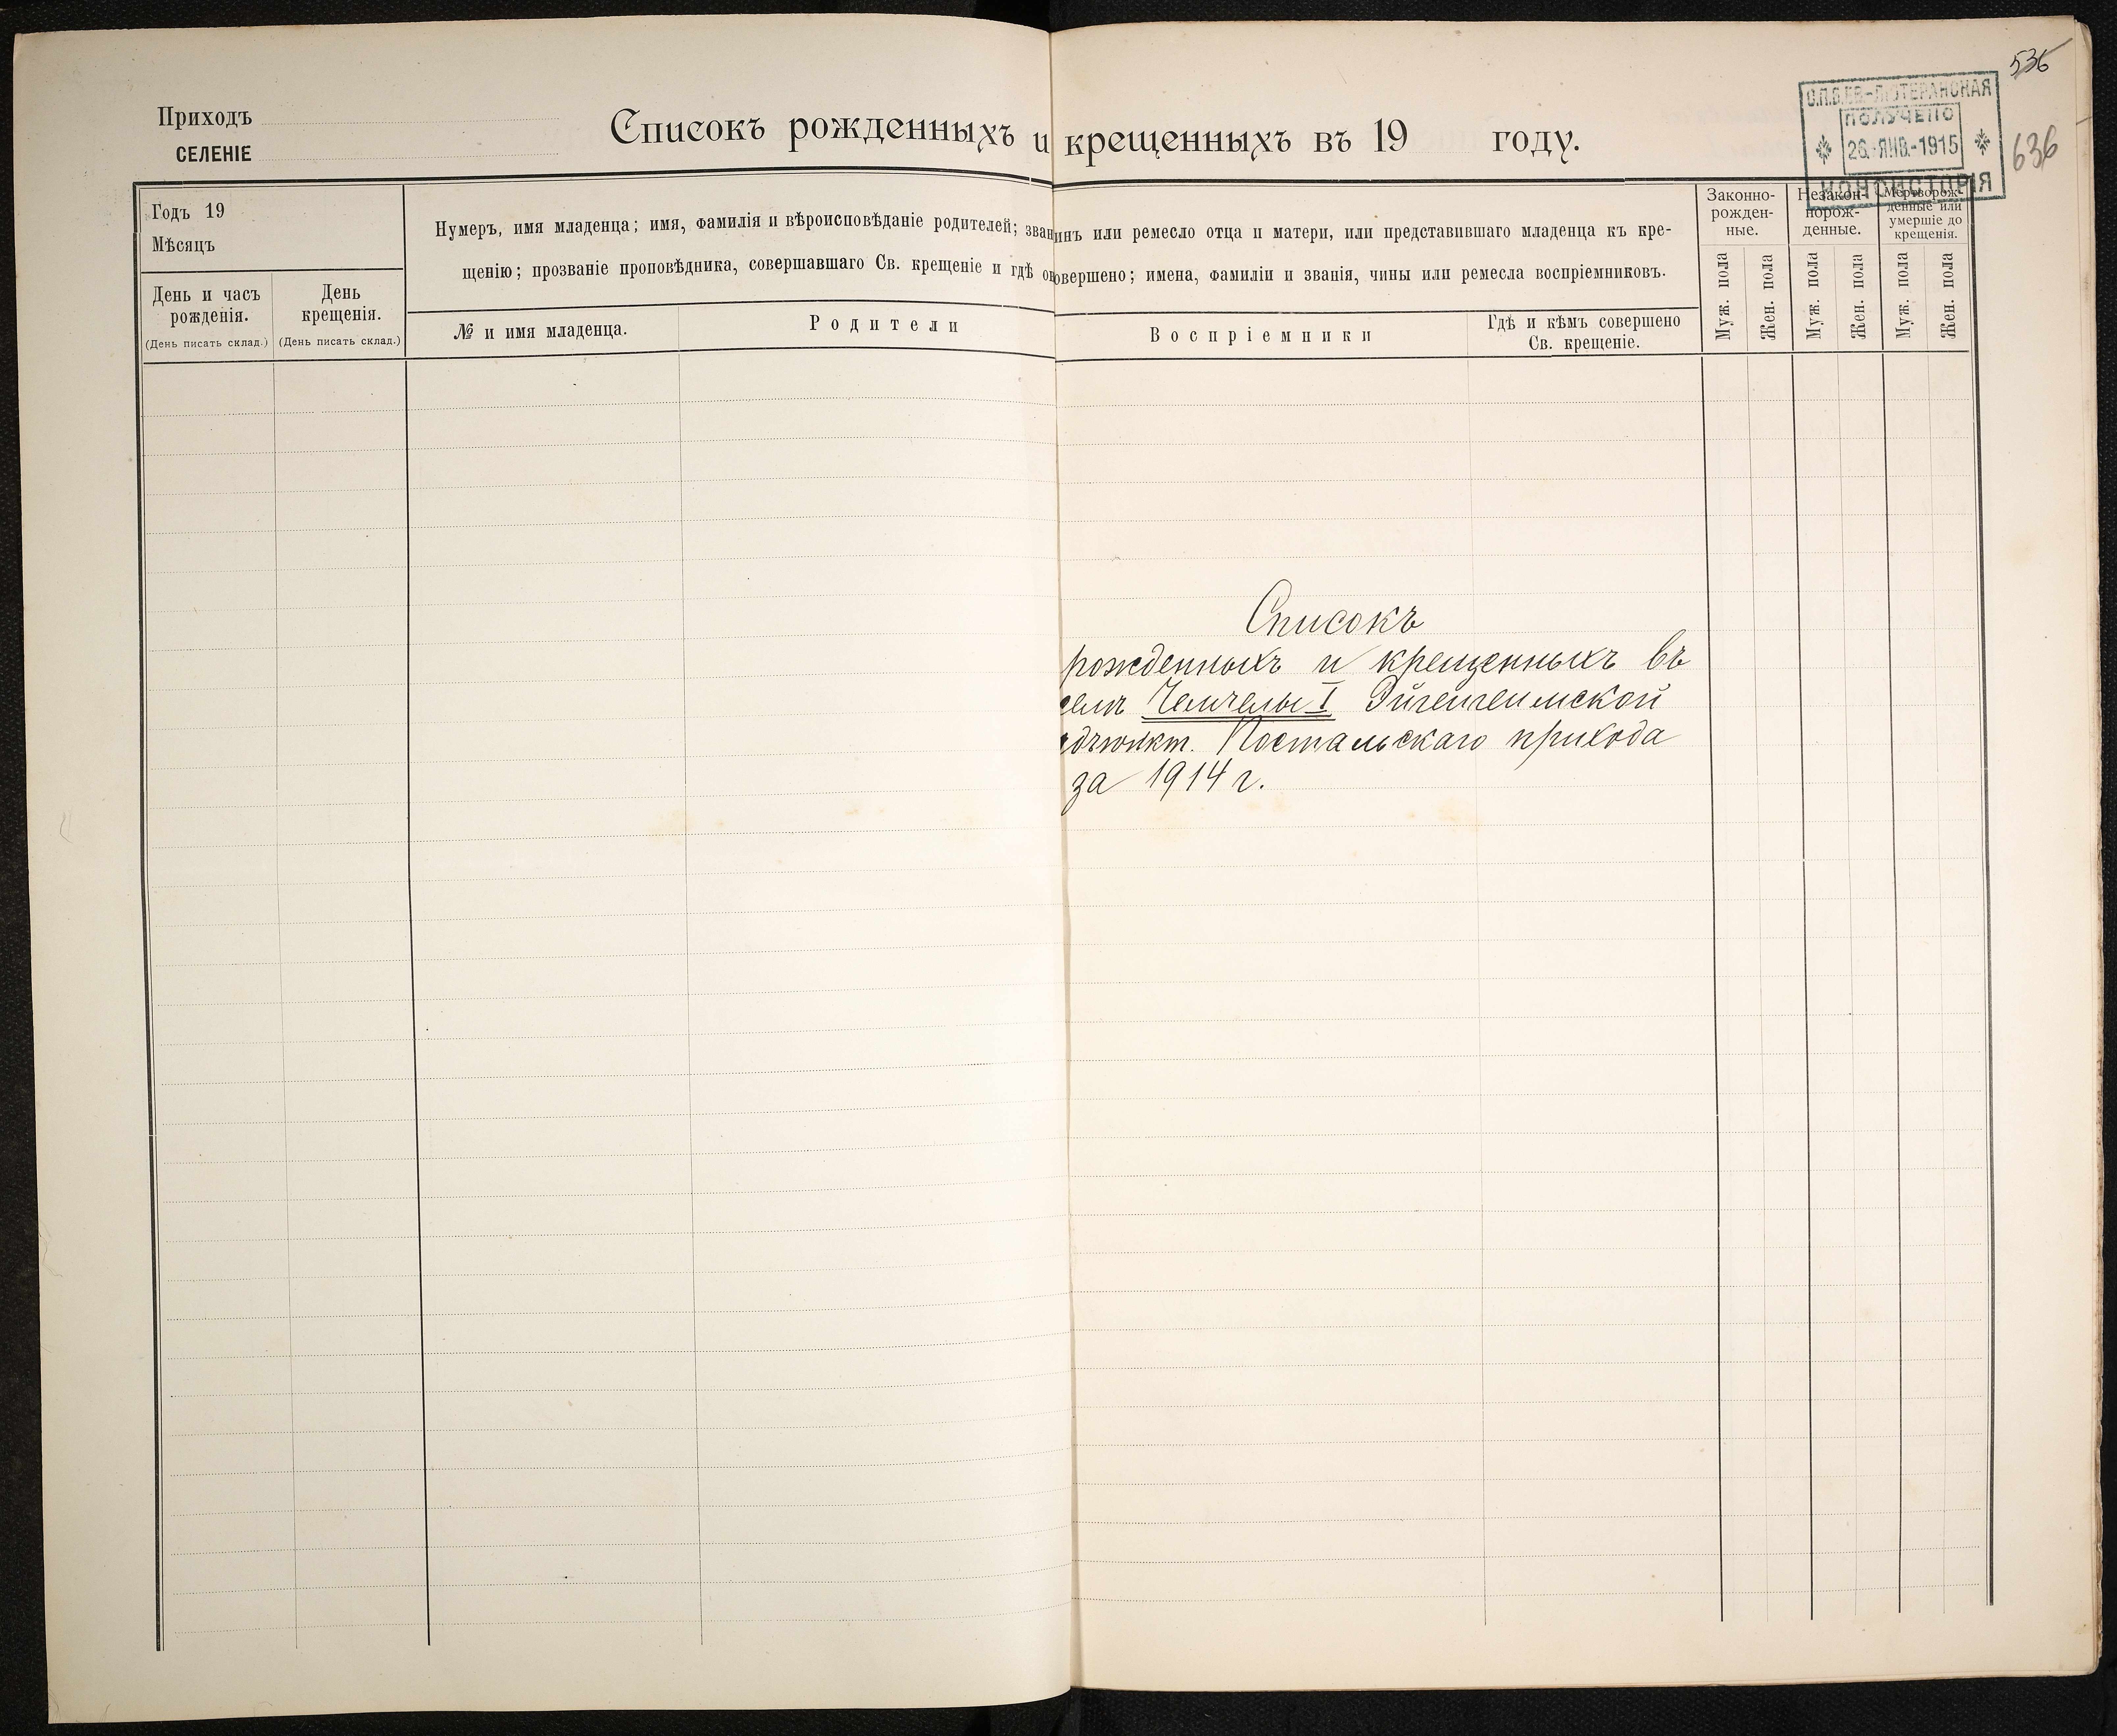 536
Приходъ
СЕЛЕНІЕ
Списокъ рожденныхъ и крещенныхъ въ 19 году.
С.П.Б.ЕВ.-ЛЮТЕРАНСКАЯ
ПОЛУЧЕНО
26.-ЯНВ.-1915
КОНСИСТОРІЯ
636
Годъ 19
Мѣсяцъ
День и часъ
рожденія.
(День писать склад.)
День
крещенія.
(День писать склад.)
Нумеръ, имя младенца; имя, фамилія и вѣроисповѣданіе родителей; зван
инъ или ремесло отца и матери, или представившаго младенца къ кре-
щенію; прозваніе проповѣдника, совершавшаго Св. крещеніе и гдѣ о
овершено; имена, фамиліи и званія, чины или ремесла воспріемниковъ.
№ и имя младенца.
Родители
Воспріемники
Гдѣ и кѣмъ совершено
Св. крещеніе.
Законно-
рожден-
ные.
Незакон-
норож-
денные.
Мертворож-
денные или
умершіе до
крещенія.
Муж. пола
Жен. пола
Муж. пола
Жен. пола
Муж. пола
Жен. пола
Списокъ
рожденныхъ и крещенныхъ въ
Чемчелы I Эйгенгеимской
адъюнкт. Постальскаго прихода
за 1914 г.